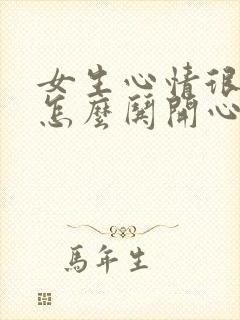 女生心情很
怎麼鬨開心
馬年生